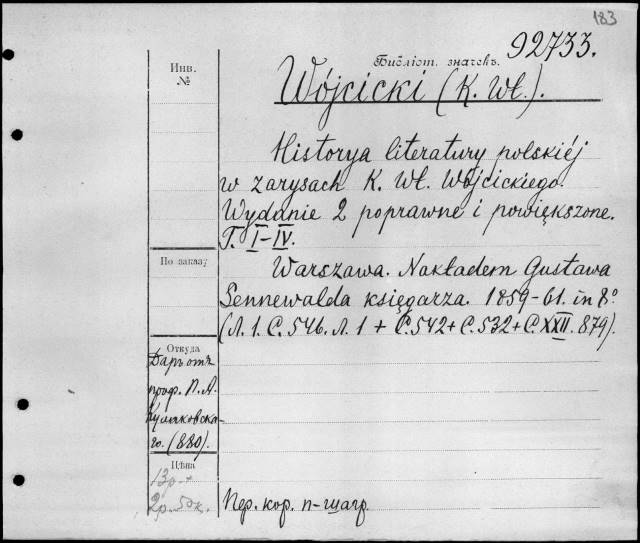 183
92733.
Библіот. значекъ.
Инв.
№
Wójcicki (K. Wł.).
Historya literatury polskiéj
w zarysach K. Wł. Wójcickiego.
Wydanie 2 poprawne i powiększone.
T. I–IV.
По заказу
Warszawa. Nakładem Gustawa
Sennewalda księgarza. 1859–61. in 8°
(Л. 1. С. 546. Л. 1 + С. 542 + С. 532 + С. XXII. 879).
Откуда
Даръ отъ
проф. П. А.
Кулаковска-
го. (880).
Цѣна
13р. +
2р. 50к.
Пер. кор. п-шагр.